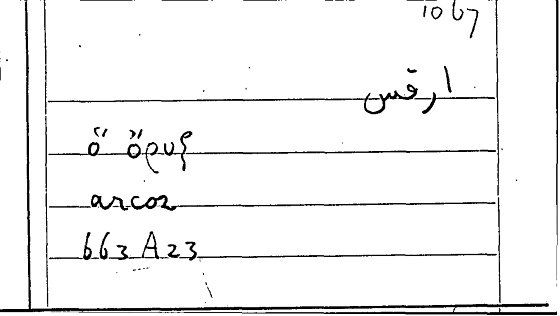 1067
ارقس
ὁ ὄρυξ
arcos
663 A 23